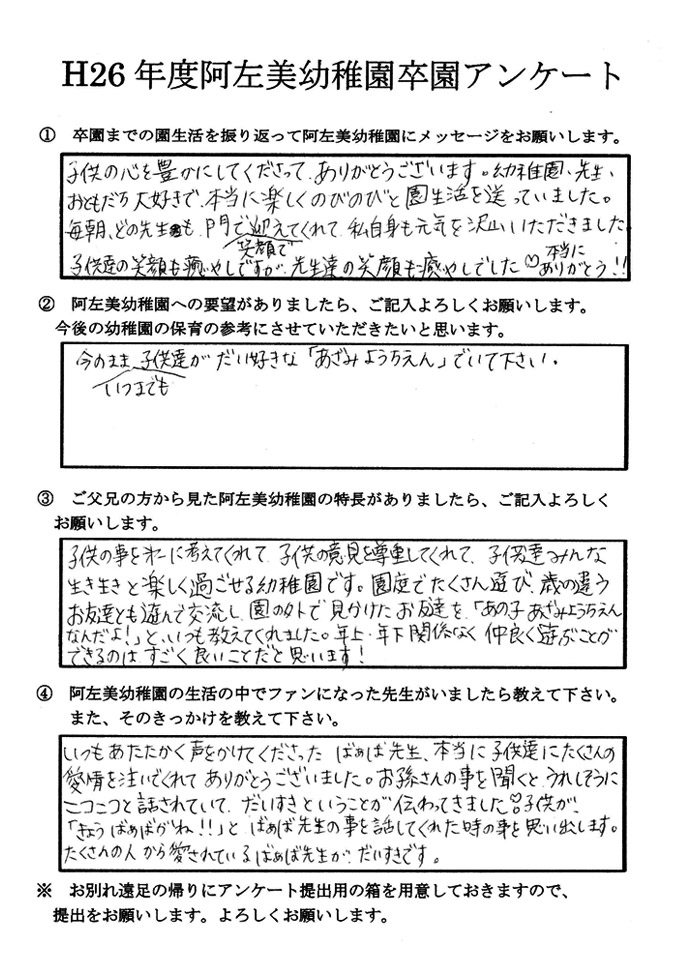 H26 年度阿左美幼稚園卒園アンケート
① 卒園までの園生活を振り返って阿左美幼稚園にメッセージをお願いします。
子供の心を豊かにしてくださって、ありがとうございます。幼稚園、先生、
おともだち大好きで、本当に楽しくのびのびと園生活を送っていました。
毎朝、どの先生も、門で迎えてくれて、私自身も元気を沢山いただきました。
笑顔で
子供達の笑顔も癒やしですが、先生達の笑顔も癒やしでした♡本当に
ありがとう!!
② 阿左美幼稚園への要望がありましたら、ご記入よろしくお願いします。
今後の幼稚園の保育の参考にさせていただきたいと思います。
今のまま、子供達がだい好きな「あざみようちえん」でいて下さい。
いつまでも
③ ご父兄の方から見た阿左美幼稚園の特長がありましたら、ご記入よろしく
お願いします。
子供の事を第一に考えてくれて、子供の意見を尊重してくれて、子供達みんな
生き生きと楽しく過ごせる幼稚園です。園庭でたくさん遊び、歳の違う
お友達とも遊んで交流し、園の外で見かけたお友達を、「あの子あざみようちえん
なんだよ!」と、いつも教えてくれました。年上・年下関係なく仲良く遊ぶことが
できるのは、すごく良いことだと思います!
④ 阿左美幼稚園の生活の中でファンになった先生がいましたら教えて下さい。
また、そのきっかけを教えて下さい。
いつもあたたかく声をかけてくださった ばぁば先生、本当に子供達にたくさんの
愛情を注いでくれてありがとうございました。お孫さんの事を聞くと、うれしそうに
ニコニコと話されていて、だいすきということが伝わってきました♡子供が、
「きょうばぁばがね!!」と ばぁば先生の事を話してくれた時の事を思い出します。
たくさんの人から愛されているばぁば先生が、だいすきです。
※ お別れ遠足の帰りにアンケート提出用の箱を用意しておきますので、
提出をお願いします。よろしくお願いします。